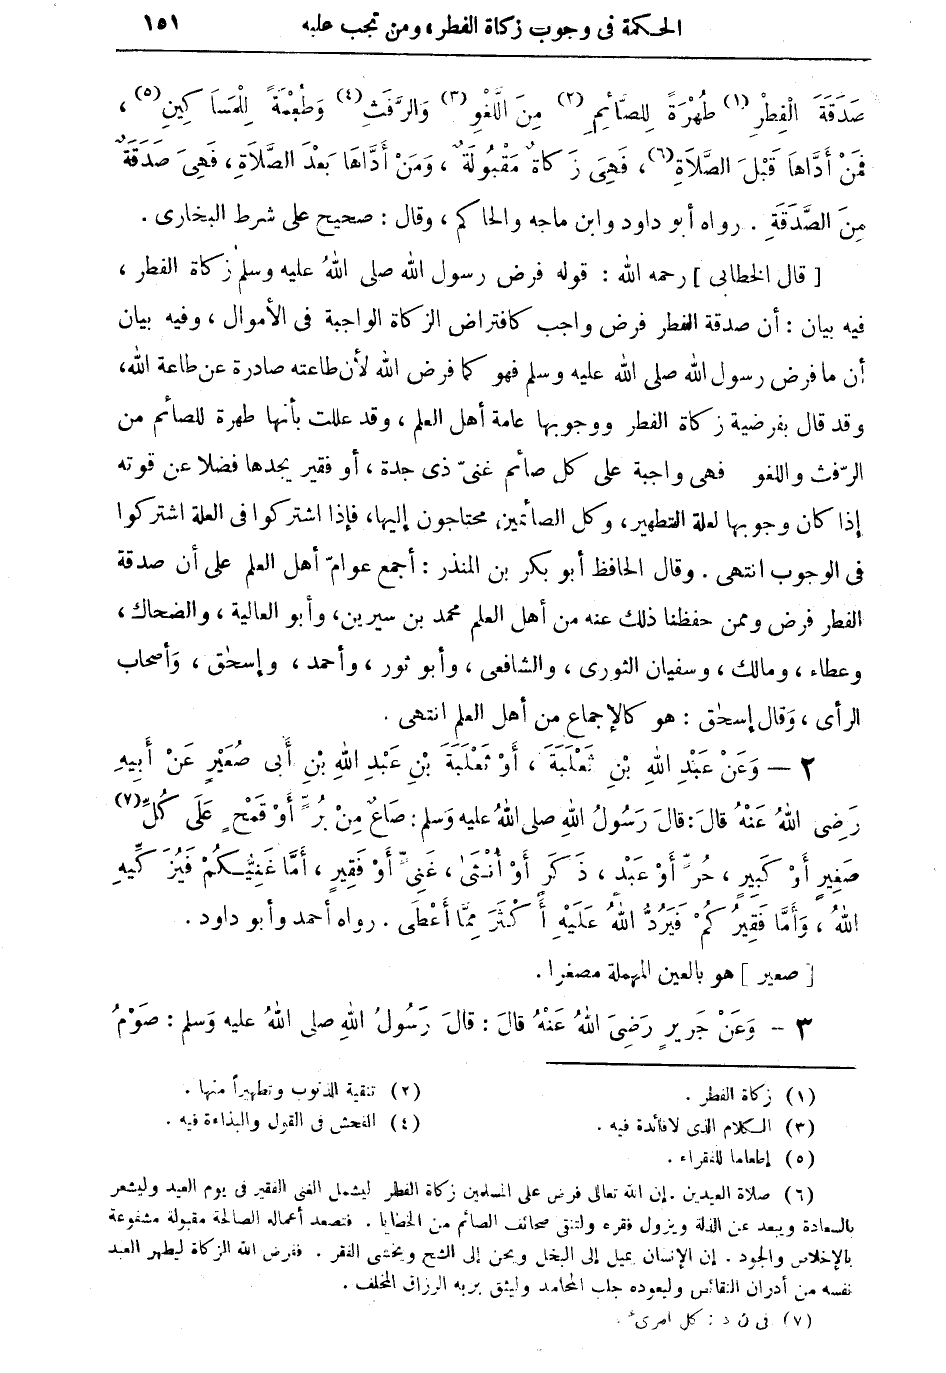 الحكمة فى وجوب زكاة الفطر، ومن تجب عليه ١٥١
صَدَقَةَ الْفِطْرِ(١) طُهْرَةً لِلصَّائِمِ(٢) مِنَ الَّلغْوِ(٣) وَالرَّفَثِ(٤) وَطُعْمَةً لِلْمَسَاكِينِ(٥)،
فَمَنْ أَدَّاهَا قَبْلَ الصَّلاَةِ(٦)، فَهِىَ زَكَاةٌ مَقْبُولَةٌ، وَمَنْ أَدَّاهَا بَعْدَ الصَّلاَةِ، فَهِىَ صَدَقَةٌ
مِنَ الصَّدَقَةِ. رواه أبو داود وابن ماجه والحاكم، وقال: صحيح على شرط البخارى.
[قال الخطابى] رحمه الله: قوله فرض رسول الله صلى اللهُ عليه وسلم زكاة الفطر،
فيه بيان: أن صدقة الفطر فرض واجب كافتراض الزكاة الواجبة فى الأموال، وفيه بيان
أن ما فرض رسول الله صلى الله عليه وسلم فهو كما فرض الله لأن طاعته صادرة عن طاعة الله،
وقد قال بفرضية زكاة الفطر ووجوبها عامة أهل العلم، وقد عللت بأنها طهرة للصائم من
الرّفث واللغو فهى واجبة على كل صائم غنىّ ذى جدة، أو فقير يجدها فضلا عن قوته
إذا كان وجوبها لعلة التطهير، وكل الصائمين محتاجون إليها، فإذا اشتركوا فى العلة اشتركوا
فى الوجوب انتهى. وقال الحافظ أبو بكر بن المنذر: أجمع عوامّ أهل العلم على أن صدقة
الفطر فرض وممن حفظنا ذلك عنه من أهل العلم محمد بن سيرين، وأبو العالية، والضحاك،
وعطاء، ومالك، وسفيان الثورى، والشافعى، وأبو ثور، وأحمد، وإسحٰق، وَأصحاب
الرأى، وَقال إسحٰق: هو كالإجماع من أهل العلم انتهى.
٢ — وَعَنْ عَبْدِ اللهِ بْنِ ثَعْلَبَةَ، أَوْ ثَعْلَبَةَ بْنِ عَبْدِ اللهِ بْنِ أَبى صُعَيْرٍ عَنْ أَبِيهِ
رَضِى اللهُ عَنْهُ قالَ: قالَ رَسُولُ اللهِ صلى اللهُ عليه وَسلم: صَاعٌ مِنْ بُرٍّ أَوْ قَمْحٍ عَلَى كُلِّ(٧)
صَغِيرٍ أَوْ كَبِيرٍ، حُرٍّ أَوْ عَبْدٍ، ذَكَرٍ أَوْ أُنْثَى، غَنِىٍّ أَوْ فَقِيرٍ، أَمَّا غَنِيُّكُمْ فَيُزَكِّيهِ
اللهُ، وَأَمَّا فَقِيرُكُمْ فَيَرُدُّ اللهُ عَلَيْهِ أَكْثَرَ مِمَّا أَعْطَى. رواه أحمد وأبو داود.
[صعير] هو بالعين المهملة مصغرا.
٣ — وَعَنْ جَرِيرٍ رَضِىَ اللهُ عَنْهُ قالَ: قالَ رَسُولُ اللهِ صلى اللهُ عليه وَسلم: صَوْمُ
(١) زكاة الفطر. (٢) تنقية الذنوب وتطهيراً منها.
(٣) الكلام الذى لافائدة فيه. (٤) الفحش فى القول والبذاءة فيه.
(٥) إطعاما للفقراء.
(٦) صلاة العيدين. إن الله تعالى فرض على المسلمين زكاة الفطر ليشمل الغنى الفقير فى يوم العيد وليشعر
بالسعادة ويبعد عن الذلة ويزول فقره ولتنقى صحائف الصائم من الخطايا. فتصعد أعماله الصالحة مقبولة مشفوعة
بالإخلاص والجود. إن الإنسان يميل إلى البخل ويحن إلى الشح ويخشى الفقر. ففرض الله الزكاة ليطهر العبد
نفسه من أدران النقائص وليعوده جلب المحامد وليثق بربه الرزاق المخلف.
(٧) فى ن د: كل امرىء.